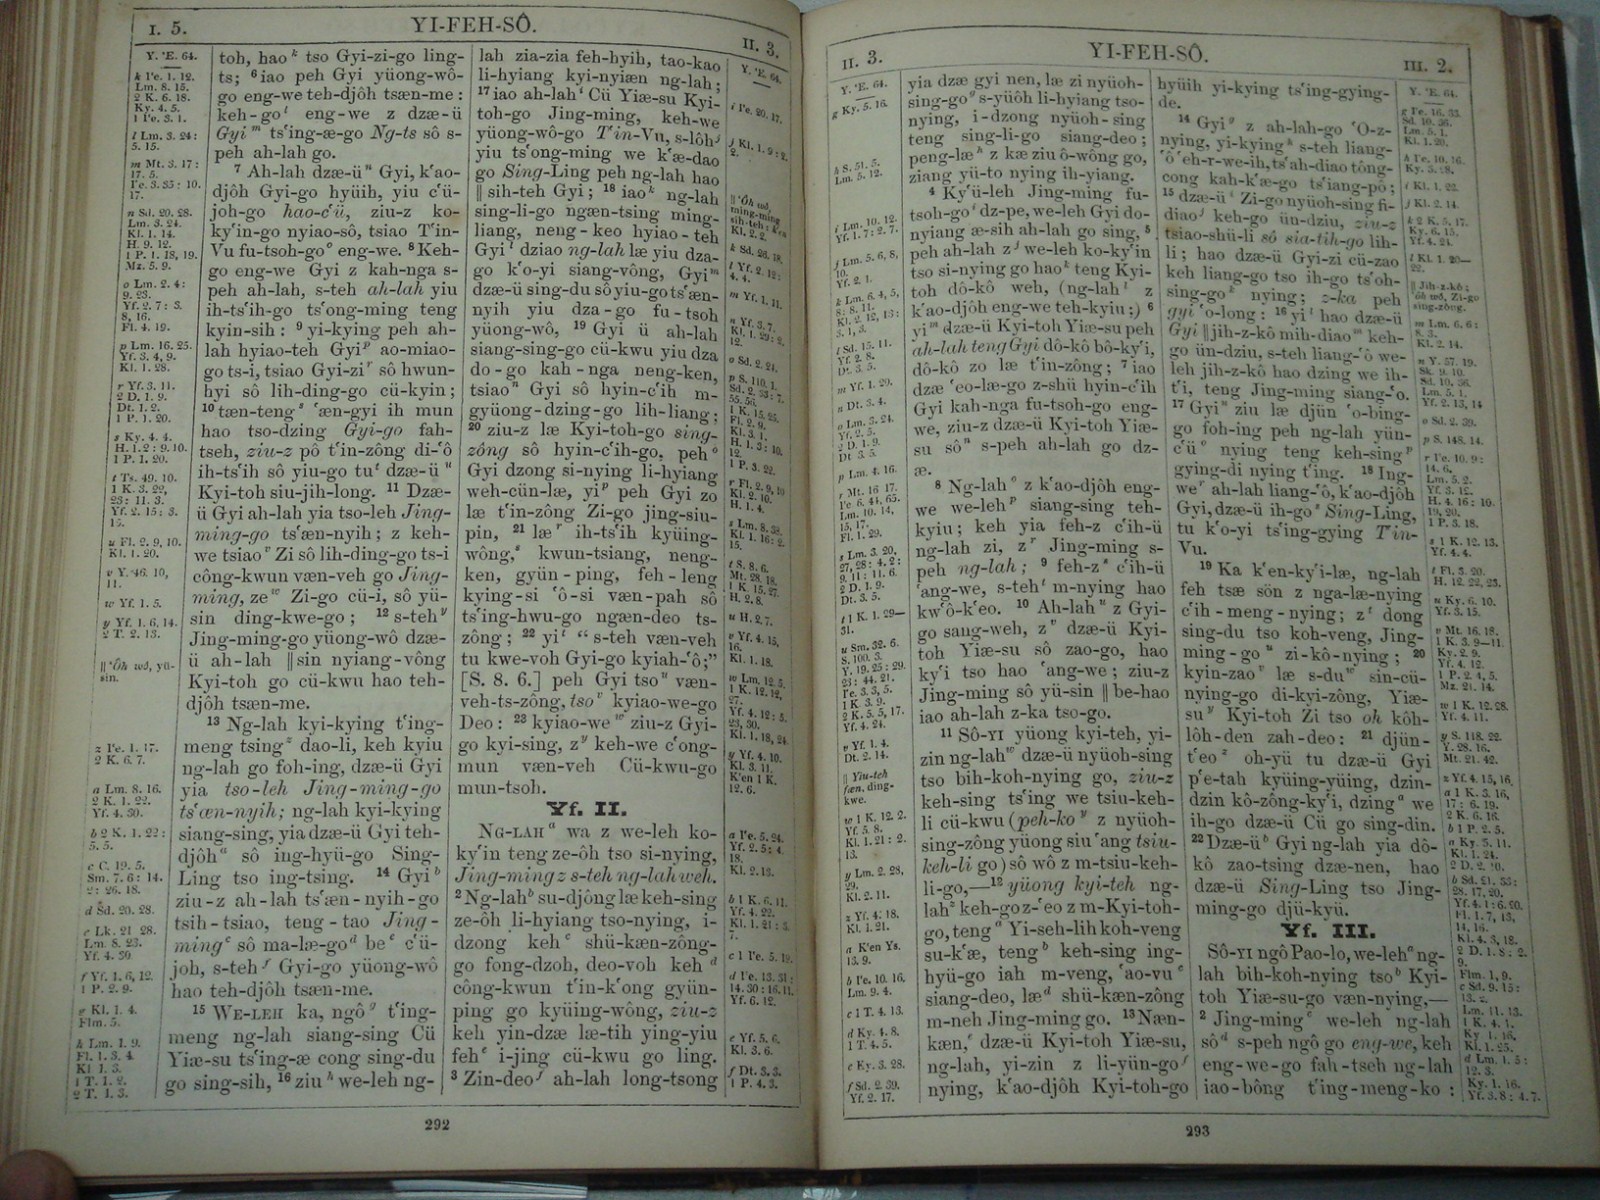 I. 5.
YI-FEH-SÔ.
II. 3.
Y. 'E. 64.
k l'e. 1. 12.
Lm. 8. 15.
2 K. 6. 18.
Ky. 4. 5.
1 I'e. 3. 1.
l Lm. 3. 24:
5. 15.
m Mt. 3. 17:
17. 5.
n Sd. 20. 28.
Lm. 3. 24.
Kl. 1. 14.
H. 9. 12.
1 P. 1. 18, 19.
Mz. 5. 9.
o Lm. 2. 4:
9. 23.
Yf. 2. 7: 3.
8, 16.
Fl. 4. 19.
p Lm. 16. 25.
Yf. 3. 4, 9.
Kl. 1. 28.
r Yf. 3. 11.
2 D. 1. 9.
Dt. 1. 2.
1 P. 1. 20.
s Ky. 4. 4.
H. 1. 2: 9. 10.
1 P. 1. 20.
t Ts. 49. 10.
1 K. 3. 22,
23: 11. 3.
Yf. 2. 15: 3.
15.
u Fl. 2. 9, 10.
Kl. 1. 20.
v Y. 46. 10,
11.
w Yf. 1. 5.
y Yf. 1. 6, 14.
2 T. 2. 13.
|| 'Ôh wô, yü-
sin.
z I'e. 1. 17.
2 K. 6. 7.
a Lm. 8. 16.
2 K. 1. 22.
Yf. 4. 30.
b 2 K. 1. 22:
5. 5.
c C. 19. 5.
Sm. 7. 6: 14.
2: 26. 18.
d Sd. 20. 28.
e Lk. 21 28.
Lm. 8. 23.
Yf. 4. 30
f Yf. 1. 6, 12.
1 P. 2. 9.
g Kl. 1. 4.
Flm. 5.
h Lm. 1. 9.
Fl. 1. 3, 4
Kl 1. 3.
1 T. 1. 2.
2 T. 1. 3.
toh, hao k tso Gyi-zi-go ling-
ts; 6 iao peh Gyi yüong-wô-
go eng-we teh-djôh tsæn-me:
keh-go l eng-we z dzæ-ü
Gyi m ts'ing-æ-go Ng-ts sô s-
peh ah-lah go.
7 Ah-lah dzæ-ü n Gyi, k'ao-
djôh Gyi-go hyüih, yiu c'ü-
joh-go hao-c'ü, ziu-z ko-
ky'in-go nyiao-sô, tsiao T'in-
Vu fu-tsoh-go o eng-we. 8 Keh-
go eng-we Gyi z kah-nga s-
peh ah-lah, s-teh ah-lah yiu
ih-ts'ih-go ts'ong-ming teng
kyin-sih: 9 yi-kying peh ah-
lah hyiao-teh Gyi p ao-miao-
go ts-i, tsiao Gyi-zi r sô hwun-
hyi sô lih-ding-go cü-kyin;
10 tæn-teng s 'æn-gyi ih mun
hao tso-dzing Gyi-go fah-
tseh, ziu-z pô t'in-zông di-'ô
ih-ts'ih sô yiu-go tu t dzæ-ü u
Kyi-toh siu-jih-long. 11 Dzæ-
ü Gyi ah-lah yia tso-leh Jing-
ming-go ts'æn-nyih; z keh-
we tsiao v Zi sô lih-ding-go ts-i
công-kwun væn-veh go Jing-
ming, ze w Zi-go cü-i, sô yü-
sin ding-kwe-go; 12 s-teh y
Jing-ming-go yüong-wô dzæ-
ü ah-lah || sin nyiang-vông
Kyi-toh go cü-kwu hao teh-
djôh tsæn-me.
13 Ng-lah kyi-kying t'ing-
meng tsing z dao-li, keh kyiu
ng-lah go foh-ing, dzæ-ü Gyi
yia tso-leh Jing-ming-go
ts'æn-nyih; ng-lah kyi-kying
siang-sing, yia dzæ-ü Gyi teh-
djôh a sô ing-hyü-go Sing-
Ling tso ing-tsing. 14 Gyi b
ziu-z ah-lah ts'æn-nyih-go
tsih-tsiao, teng-tao Jing-
ming c sô ma-læ-go d be e c'ü-
joh, s-teh f Gyi-go yüong-wô
hao teh-djôh tsæn-me.
15 WE-LEH ka, ngô g t'ing-
meng ng-lah siang-sing Cü
Yiæ-su ts'ing-æ cong sing-du
go sing-sih, 16 ziu h we-leh ng-
lah zia-zia feh-hyih, tao-kao
li-hyiang kyi-nyiæn ng-lah;
17 iao ah-lah i Cü Yiæ-su Kyi-
toh-go Jing-ming, keh-we
yüong-wô-go T'in-Vu, s-lôh j
yiu ts'ong-ming we k'æ-dao
go Sing-Ling peh ng-lah hao
|| sih-teh Gyi; 18 iao k ng-lah
sing-li-go ngæn-tsing ming-
liang, neng-keo hyiao-teh
Gyi l dziao ng-lah læ yiu dza-
go k'o-yi siang-vông, Gyi m
dzæ-ü sing-du sô yiu-go ts'æn-
nyih yiu dza-go fu-tsoh
yüong-wô, 19 Gyi ü ah-lah
siang-sing-go cü-kwu yiu dza
do-go kah-nga neng-ken,
tsiao n Gyi sô hyin-c'ih m-
gyüong-dzing-go lih-liang;
20 ziu-z læ Kyi-toh-go sing-
zông sô hyin-c'ih-go, peh o
Gyi dzong si-nying li-hyiang
weh-cün-læ, yi p peh Gyi zo
læ t'in-zông Zi-go jing-siu-
pin, 21 læ r ih-ts'ih kyüing-
wông, s kwun-tsiang, neng-
ken, gyün-ping, feh-leng
kying-si 'ô-si væn-pah sô
ts'ing-hwu-go ngæn-deo ts-
zông; 22 yi t “s-teh væn-veh
tu kwe-voh Gyi-go kyiah-'ô;”
[S. 8. 6.] peh Gyi tso u væn-
veh-ts-zông, tso v kyiao-we-go
Deo: 23 kyiao-we w ziu-z Gyi-
go kyi-sing, z y keh-we c'ong-
mun væn-veh Cü-kwu-go
mun-tsoh.
Yf. II.
NG-LAH a wa z we-leh ko-
ky'in teng ze-ôh tso si-nying,
Jing-ming z s-teh ng-lah weh.
2 Ng-lah b su-djông læ keh-sing
ze-ôh li-hyiang tso-nying, i-
dzong keh c shü-kæn-zông-
go fong-dzoh, deo-voh keh d
công-kwun t'in-k'ong gyün-
ping go kyüing-wông, ziu-z
keh yin-dzæ læ-tih ying-yiu
feh e i-jing cü-kwu go ling.
3 Zin-deo f ah-lah long-tsong
Y. 'E. 64.
i I'e. 20. 17.
j Kl. 1. 9: 2.
2.
|| 'Ôh wô,
ming-ming
Kl. 2. 2.
k Sd. 26. 18.
l Yf. 2. 12:
4. 4.
m Yf. 1. 11.
n Yf. 3. 7.
Kl. 1. 29: 2.
12.
o Sd. 2. 24.
p S. 110. 1.
55. 56.
1 K. 15. 25.
Fl. 2. 9.
Kl. 3. 1.
H. 1. 3: 10.
12.
1 P. 3. 22.
r Fl. 2. 9, 10
Kl. 2. 10.
H. 1. 4.
s Lm. 8. 38.
Kl. 1. 16: 2.
15.
t S. 8. 6.
Mt. 28. 18.
1 K. 15. 27.
H. 2. 8.
u H. 2. 7.
v Yf. 4. 15,
16.
Kl. 1. 18.
w Lm. 12. 5.
1 K. 12. 12,
27.
Yf. 4. 12: 5.
23, 30.
Kl. 1. 18, 24.
y Yf. 4. 10.
Kl. 3. 11.
z K'en 1 K.
12. 6.
a I'e. 5. 24.
Yf. 2. 5: 4.
18.
Kl. 2. 13.
b 1 K. 6. 11.
Yf. 4. 22.
Kl. 1. 21: 3.
7.
c 1 I'e. 5. 19.
d I'e. 13. 31:
14. 30: 16. 11.
Yf. 6. 12.
e Yf. 5. 6.
Kl. 3. 6.
f Dt. 3. 3.
1 P. 4. 3.
292
II. 3.
YI-FEH-SÔ.
III. 2.
Y. 'E. 64.
g Ky. 5. 16.
h S. 51. 5.
Lm. 5. 12.
i Lm. 10. 12.
Yf. 1. 7: 2. 7.
j Lm. 5. 6, 8,
10.
Yf. 2. 1.
k Lm. 6. 4, 5,
8: 8. 11.
Kl. 2. 12, 13:
3. 1, 3.
l Sd. 15. 11.
Yf. 2. 8.
Dt. 3. 5.
m Yf. 1. 20.
n Dt. 3. 4.
o Lm. 3. 24.
Yf. 2. 5.
2 D. 1. 9.
Dt 3. 5.
p Lm. 4. 16.
r Mt. 16 17.
I'e 6. 44, 65.
Lm. 10. 14,
15, 17.
Fl. 1. 29.
s Lm. 3. 20,
27, 28: 4. 2:
9. 11: 11. 6.
2 D. 1. 9.
Dt. 3. 5.
t 1 K. 1. 29—
31.
u Sm. 32. 6.
S. 100. 3.
Y. 19. 25: 29.
23: 44. 21.
I'e. 3. 3, 5.
1 K. 3. 9.
2 K. 5. 5, 17.
Yf. 4. 24.
v Yf. 1. 4.
Dt. 2. 14.
|| Yiu-teh
fæn, ding-
kwe.
w 1 K. 12. 2.
Yf. 5. 8.
Kl. 1. 21: 2.
13.
y Lm. 2. 28,
29.
Kl. 2. 11.
z Yf. 4. 18.
Kl. 1. 21.
a K'en Ys.
13. 9.
b I'e. 10. 16.
Lm. 9. 4.
c 1 T. 4. 13.
d Ky. 4. 8.
1 T. 4. 5.
e Ky. 3. 28.
f Sd. 2. 39.
Yf. 2. 17.
yia dzæ gyi nen, læ zi nyüoh-
sing-go g s-yüôh li-hyiang tso-
nying, i-dzong nyüoh-sing
teng sing-li-go siang-deo;
peng-læ h z kæ ziu ô-wông go,
ziang yü-to nying ih-yiang.
4 Ky'ü-leh Jing-ming fu-
tsoh-go i dz-pe, we-leh Gyi do-
nyiang æ-sih ah-lah go sing, 5
peh ah-lah z j we-leh ko-ky'in
tso si-nying go hao k teng Kyi-
toh dô-kô weh, (ng-lah l z
k'ao-djôh eng-we teh-kyiu;) 6
yi m dzæ-ü Kyi-toh Yiæ-su peh
ah-lah teng Gyi dô-kô bô-ky'i,
dô-kô zo læ t'in-zông; 7 iao
dzæ 'eo-læ-go z-shü hyin-c'ih
Gyi kah-nga fu-tsoh-go eng-
we, ziu-z dzæ-ü Kyi-toh Yiæ-
su sô n s-peh ah-lah go dz-
æ.
8 Ng-lah o z k'ao-djôh eng-
we we-leh p siang-sing teh-
kyiu; keh yia feh-z c'ih-ü
ng-lah zi, z r Jing-ming s-
peh ng-lah; 9 feh-z s c'ih-ü
'ang-we, s-teh t m-nying hao
kw'ô-k'eo. 10 Ah-lah u z Gyi-
go sang-weh, z v dzæ-ü Kyi-
toh Yiæ-su sô zao-go, hao
ky'i tso hao 'ang-we; ziu-z
Jing-ming sô yü-sin || be-hao
iao ah-lah z-ka tso-go.
11 SÔ-YI yüong kyi-teh, yi-
zin ng-lah w dzæ-ü nyüoh-sing
tso bih-koh-nying go, ziu-z
keh-sing ts'ing we tsiu-keh-
li cü-kwu (peh-ko y z nyüoh-
sing-zông yüong siu 'ang tsiu-
keh-li go) sô wô z m-tsiu-keh-
li-go,—12 yüong kyi-teh ng-
lah z keh-go z-'eo z m-Kyi-toh-
go, teng a Yi-seh-lih koh-veng
su-k'æ, teng b keh-sing ing-
hyü-go iah m-veng, 'ao-vu c
siang-deo, læ d shü-kæn-zông
m-neh Jing-ming go. 13 Næn-
kæn, e dzæ-ü Kyi-toh Yiæ-su,
ng-lah, yi-zin z li-yün-go f
nying, k'ao-djôh Kyi-toh-go
hyüih yi-kying ts'ing-gying-
de.
14 Gyi g z ah-lah-go 'O-z-
nying, yi-kying h s-teh liang-
'ô 'eh-r-we-ih, ts'ah-diao tông-
cong kah-k'æ-go ts'iang-pô;
15 dzæ-ü i Zi-go nyüoh-sing fi-
diao j keh-go ün-dziu, ziu-z
tsiao-shü-li sô sia-tih-go lih-
li; hao dzæ-ü Gyi-zi cü-zao
keh liang-go tso ih-go ts'oh-
sing-go k nying; z-ka peh
gyi 'o-long: 16 yi l hao dzæ-ü
Gyi || jih-z-kô mih-diao m keh-
go ün-dziu, s-teh liang-'ô we-
leh jih-z-kô hao dzing we ih-
t'i, teng Jing-ming siang-'o.
17 Gyi n ziu læ djün 'o-bing-
go foh-ing peh ng-lah yün-
c'ü o nying teng keh-sing p
gying-di nying t'ing. 18 Ing-
we r ah-lah liang-'ô, k'ao-djôh
Gyi, dzæ-ü ih-go s Sing-Ling,
tu k'o-yi ts'ing-gying T'in-
Vu.
19 Ka k'en-ky'i-læ, ng-lah
feh tsæ sön z nga-læ-nying
c'ih-meng-nying; z t dong
sing-du tso koh-veng, Jing-
ming-go u zi-kô-nying; 20
kyin-zao v læ s-du w sin-cü-
nying-go di-kyi-zông, Yiæ-
su y Kyi-toh Zi tso oh kôh-
lôh-den zah-deo: 21 djün-
t'eo z oh-yü tu dzæ-ü Gyi
p'e-tah kyüing-yüing, dzin-
dzin kô-zông-ky'i, dzing a we
ih-go dzæ-ü Cü go sing-din.
22 Dzæ-ü b Gyi ng-lah yia dô-
kô zao-tsing dzæ-nen, hao
dzæ-ü Sing-Ling tso Jing-
ming-go djü-kyü.
Yf. III.
SÔ-YI ngô Pao-lo, we-leh a ng-
lah bih-koh-nying tso b Kyi-
toh Yiæ-su-go væn-nying,—
2 Jing-ming c we-leh ng-lah
sô d s-peh ngô go eng-we, keh
eng-we-go fah-tseh ng-lah
iao-bông t'ing-meng-ko:
Y. 'E. 64.
g I'e. 16. 33.
Sd. 10. 36.
Lm. 5. 1.
Kl. 1. 20.
h I'e. 10. 16.
Ky. 5. 28.
i Kl. 1. 22.
j Kl. 2. 14.
k 2 K. 5. 17.
Ky. 6. 15.
Yf. 4. 24.
l Kl. 1. 20—
22.
|| Jih-z-kô:
'ôh wô, Zi-go
sing-zông.
m Lm. 6. 6:
8. 3.
Kl. 2. 14.
n Y. 57. 19.
Sk. 9. 10.
Sd. 10. 36.
Lm. 5. 1.
Yf. 2. 13, 14
o Sd. 2. 39.
p S. 148. 14.
r I'e. 10. 9:
14. 6.
Lm. 5. 2.
Yf. 3. 12.
H. 4. 16: 10.
19, 20.
1 P. 3. 18.
s 1 K. 12. 13.
Yf. 4. 4.
t Fl. 3. 20.
H. 12. 22, 23.
u Ky. 6. 10.
Yf. 3. 15.
v Mt. 16. 18.
1 K. 3. 9—11
Ky. 2. 9.
Yf. 4. 12.
1 P. 2. 4, 5.
Mz. 21. 14.
w 1 K. 12. 28.
Yf. 4. 11.
y S. 118. 22.
Y. 28. 16.
Mt. 21. 42.
z Yf. 4. 15, 16.
a 1 K. 3. 16,
17: 6. 19.
2 K. 6. 16.
b 1 P. 2. 5.
a Ky. 5. 11.
Kl. 1. 24.
2 D. 2. 10.
b Sd. 21. 33:
28. 17, 20.
Yf. 4. 1: 6. 20.
Fl. 1. 7, 13,
14, 16.
Kl. 4. 3, 18.
2 D. 1. 8: 2.
9.
Flm. 1, 9.
c Sd. 9. 15:
13. 2.
Lm. 11. 13.
1 K. 4. 1.
Ky. 1. 16.
Kl. 1. 25.
d Lm. 1. 5:
12. 3.
Ky. 1. 16.
Yf. 3. 8: 4. 7.
293